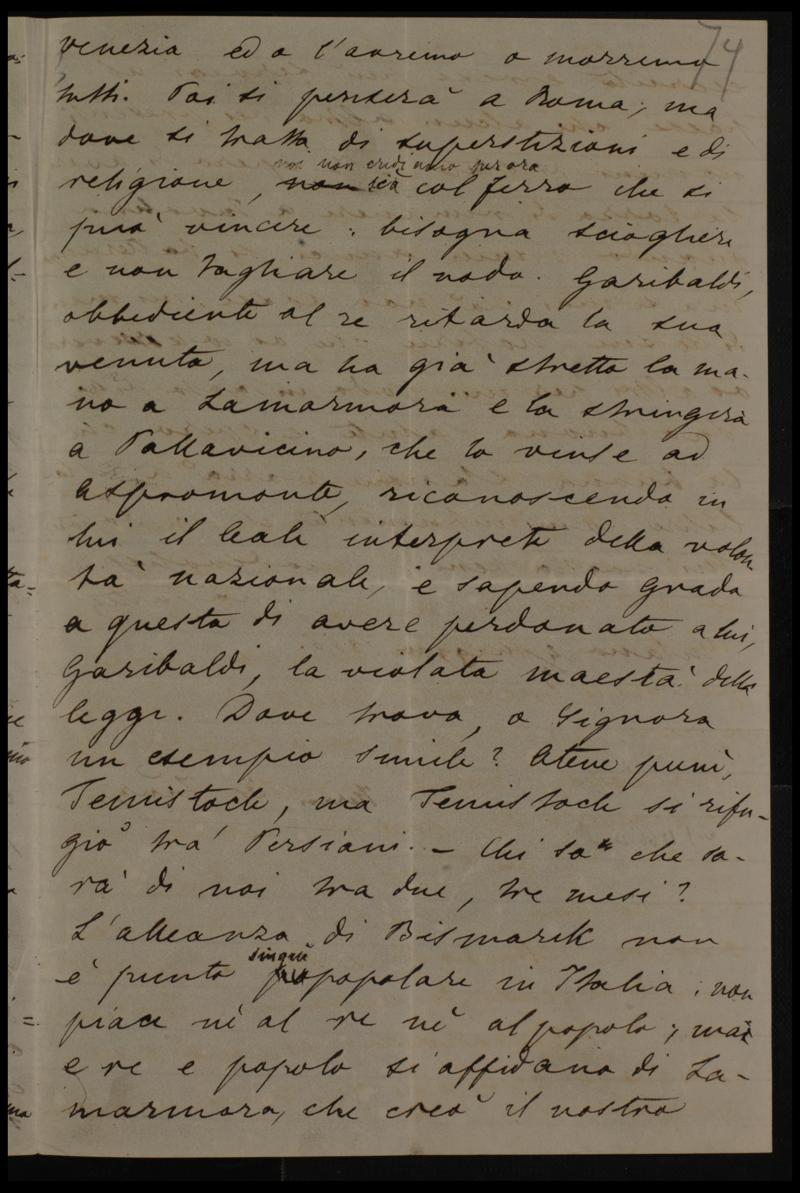 74
venezia ed o l'avremo o morremo
tutti. Poi si penserà a Roma; ma
dove si tratta di superstizioni e di
noi non crediamo per ora
religione, non sia col ferro che si
può vincere: bisogna sciogliere
e non tagliare il nodo. Garibaldi,
obbediente al re ritarda la sua
venuta, ma ha già stretto la ma-
no a Lamarmora e la stringerà
a Pallavicino, che lo vinse ad
Aspromonte, riconoscendo in
lui il leale interprete della volon
tà nazionale, e sapendo grado
a questa di avere perdonato a lui,
Garibaldi, la violata maestà delle
leggi. Dove trova, o Signora
un esempio simile? Atene punì,
Temistocle, ma Temistocle si rifu-
giò tra' Persiani. – Chi sa che sa-
rà di noi tra due, tre mesi?
L'alleanza di Bismarck non
è punto popolare in Italia; non
piace nè al re nè al popolo; ma
e re e popolo si affidano di La-
marmora, che creò il nostro